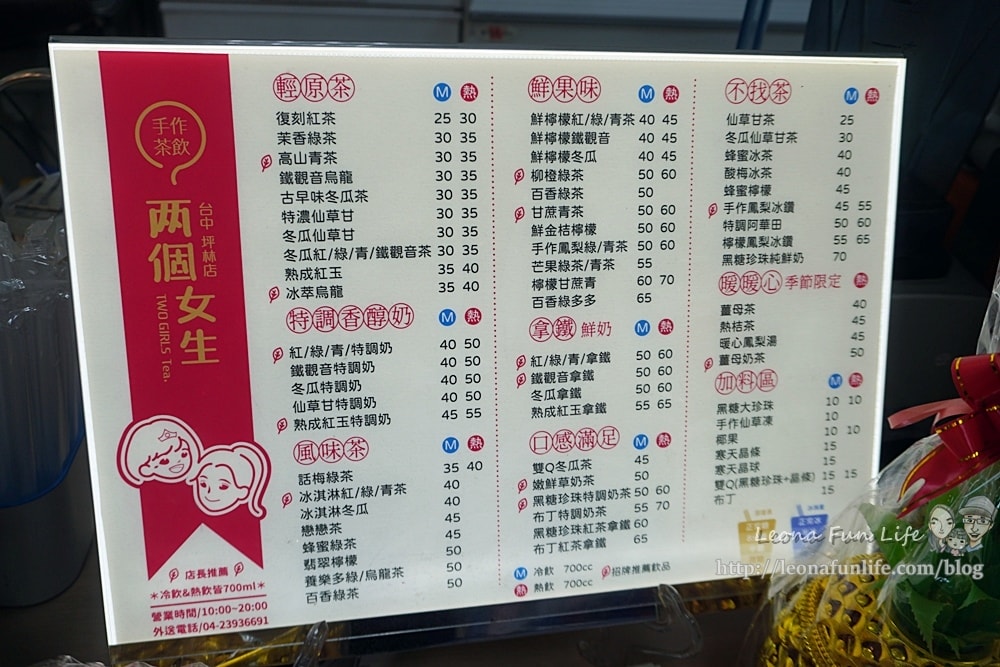 手作
茶飲
两個女生
台中 坪林店
TWO GIRLS Tea.
店長推薦
＊冷飲&熱飲皆700ml＊
營業時間/10:00~20:00
外送電話/04-23936691
輕原茶 M 熱
復刻紅茶 25 30
茉香綠茶 30 35
高山青茶 30 35
鐵觀音烏龍 30 35
古早味冬瓜茶 30 35
特濃仙草甘 30 35
冬瓜仙草甘 30 35
冬瓜紅/綠/青/鐵觀音茶 30 35
熟成紅玉 35 40
冰萃烏龍 35 40
特調香醇奶 M 熱
紅/綠/青/特調奶 40 50
鐵觀音特調奶 40 50
冬瓜特調奶 40 50
仙草甘特調奶 40 50
熟成紅玉特調奶 45 55
風味茶 M 熱
話梅綠茶 35 40
冰淇淋紅/綠/青茶 40
冰淇淋冬瓜 40
戀戀茶 45
蜂蜜綠茶 45
翡翠檸檬 50
養樂多綠/烏龍茶 50
百香綠茶 50
鮮果味 M 熱
鮮檸檬紅/綠/青茶 40 45
鮮檸檬鐵觀音 40 45
鮮檸檬冬瓜 40 45
柳橙綠茶 50 60
百香綠茶 50
甘蔗青茶 50 60
鮮金桔檸檬 50 60
手作鳳梨綠/青茶 50 60
芒果綠茶/青茶 55
檸檬甘蔗青 60 70
百香綠多多 65
拿鐵 鮮奶 M 熱
紅/綠/青/拿鐵 50 60
鐵觀音拿鐵 50 60
冬瓜拿鐵 50 60
熟成紅玉拿鐵 55 65
口感滿足 M 熱
雙Q冬瓜茶 45
嫩鮮草奶茶 50
黑糖珍珠特調奶茶 50 60
布丁特調奶茶 55 70
黑糖珍珠紅茶拿鐵 60
布丁紅茶拿鐵 65
M 冷飲 700cc
熱 熱飲 700cc 招牌推薦飲品
不找茶 M 熱
仙草甘茶 25
冬瓜仙草甘茶 30
蜂蜜冰茶 40
酸梅冰茶 40
蜂蜜檸檬 45
手作鳳梨冰鑽 45 55
特調阿華田 50 60
檸檬鳳梨冰鑽 55 65
黑糖珍珠純鮮奶 70
暖暖心 季節限定 熱
薑母茶 40
熱桔茶 45
暖心鳳梨湯 45
薑母奶茶 50
加料區 M 熱
黑糖大珍珠 10 10
手作仙草凍 10
椰果 10 10
寒天晶條 15
寒天晶球 15
雙Q(黑糖珍珠+晶條) 15 15
布丁 15
Leona Fun Life
http://leonafunlife.com/blog